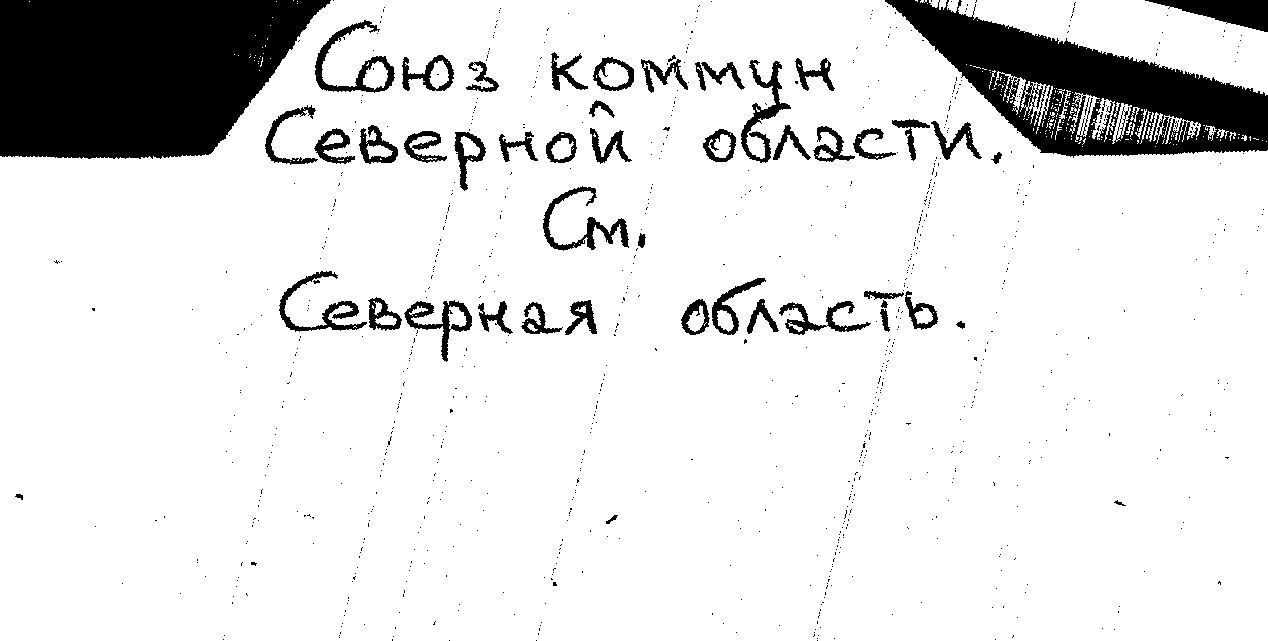 Союз коммун
Северной области.
См.
Северная область.